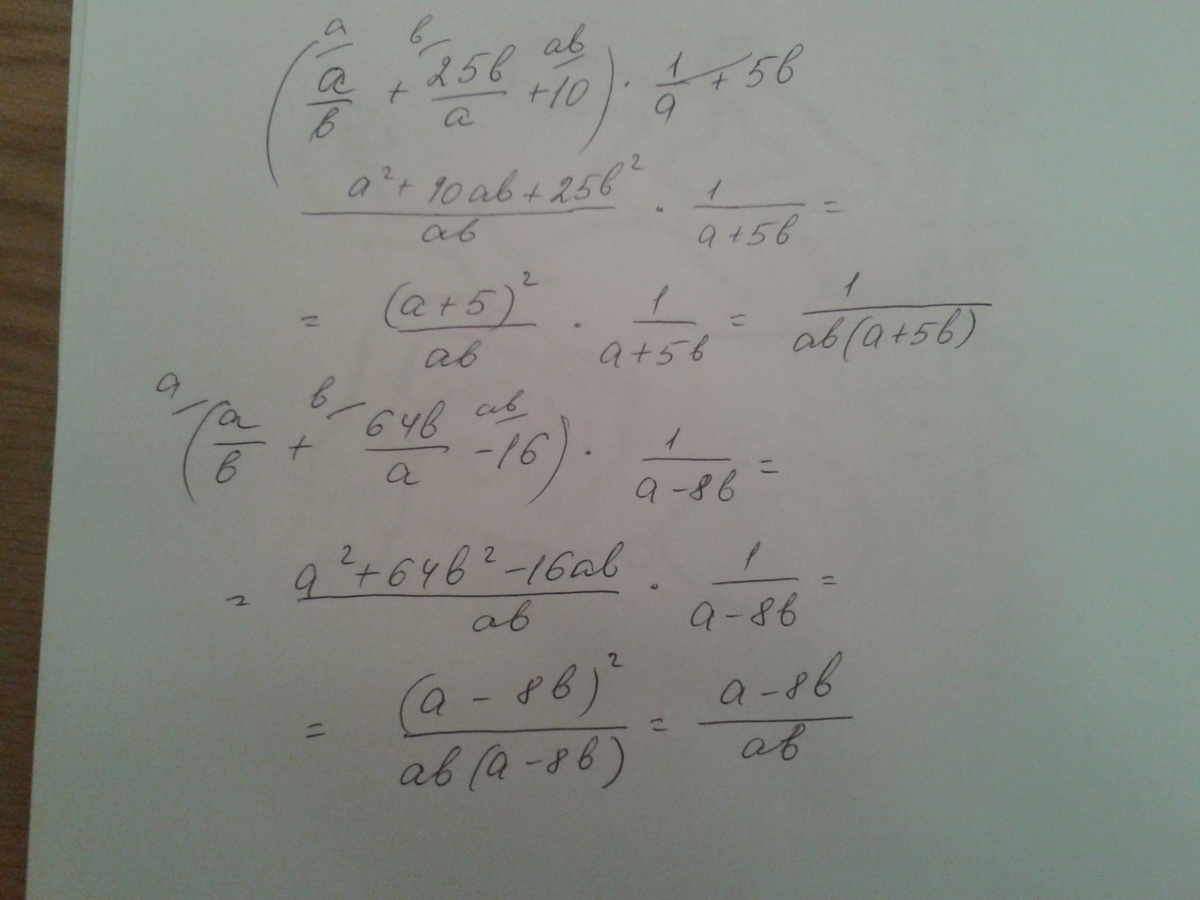 (a/(a/b) + b/(25b/a) + ab/(10)) · 1/a + 5b
(a² + 10ab + 25b²)/(ab) · 1/(a+5b) =
= (a+5)²/(ab) · 1/(a+5b) = 1/(ab(a+5b))
a/(a/b + b/(64b/a) ab/(-16)) · 1/(a-8b) =
= (a²+64b²-16ab)/(ab) · 1/(a-8b) =
= (a - 8b)²/(ab(a-8b)) = (a-8b)/(ab)